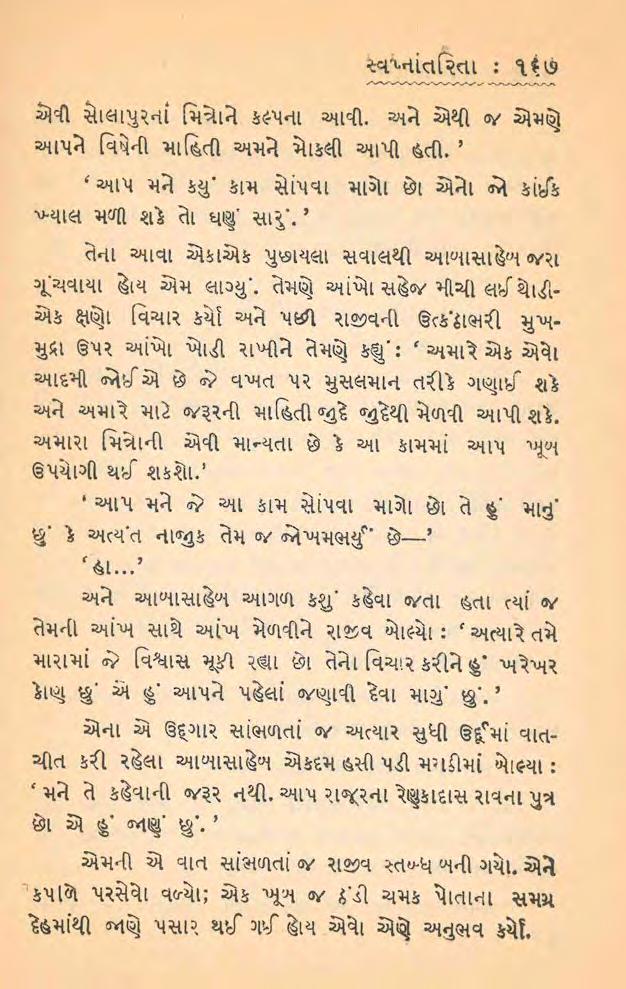 સ્વપ્નાંતરિતા : ૧૬૭
એવી સોલાપુરનાં મિત્રોને કલ્પના આવી. અને એથી જ એમણે
આપને વિષેની માહિતી અમને મોકલી આપી હતી. ’
‘ આપ મને કયું કામ સોંપવા માગો છો એનો જો કાંઈક
ખ્યાલ મળી શકે તો ઘણું સારું. ’
તેના આવા એકાએક પુછાયલા સવાલથી આબાસાહેબ જરા
ગૂંચવાયા હોય એમ લાગ્યું. તેમણે આંખો સહેજ મીચી લઈ થોડી-
એક ક્ષણો વિચાર કર્યો અને પછી રાજીવની ઉત્કંઠાભરી મુખ-
મુદ્રા ઉપર આંખો ખોડી રાખીને તેમણે કહ્યું : ‘ અમારે એક એવો
આદમી જોઈએ છે જે વખત પર મુસલમાન તરીકે ગણાઈ શકે
અને અમારે માટે જરૂરની માહિતી જુદે જુદેથી મેળવી આપી શકે.
અમારા મિત્રોની એવી માન્યતા છે કે આ કામમાં આપ ખૂબ
ઉપયોગી થઈ શકશો.’
‘ આપ મને જે આ કામ સોંપવા માગો છો તે હું માનું
છું કે અત્યંત નાજુક તેમ જ જોખમભર્યું છે—’
‘ હા...’
અને આબાસાહેબ આગળ કશું કહેવા જતા હતા ત્યાં જ
તેમની આંખ સાથે આંખ મેળવીને રાજીવ બોલ્યો : ‘ અત્યારે તમે
મારામાં જે વિશ્વાસ મૂકી રહ્યા છો તેનો વિચાર કરીને હું ખરેખર
કોણ છું એ હું આપને પહેલાં જણાવી દેવા માગું છું. ’
એના એ ઉદ્ગાર સાંભળતાં જ અત્યાર સુધી ઉર્દૂમાં વાત-
ચીત કરી રહેલા આબાસાહેબ એકદમ હસી પડી મરાઠીમાં બોલ્યા :
‘ મને તે કહેવાની જરૂર નથી. આપ રાજૂરના રેણુકાદાસ રાવના પુત્ર
છો એ હું જાણું છું. ’
એમની એ વાત સાંભળતાં જ રાજીવ સ્તબ્ધ બની ગયો. એને
કપાળે પરસેવો વળ્યો; એક ખૂબ જ ઠંડી ચમક પોતાના સમગ્ર
દેહમાંથી જાણે પસાર થઈ ગઈ હોય એવો એણે અનુભવ કર્યો.